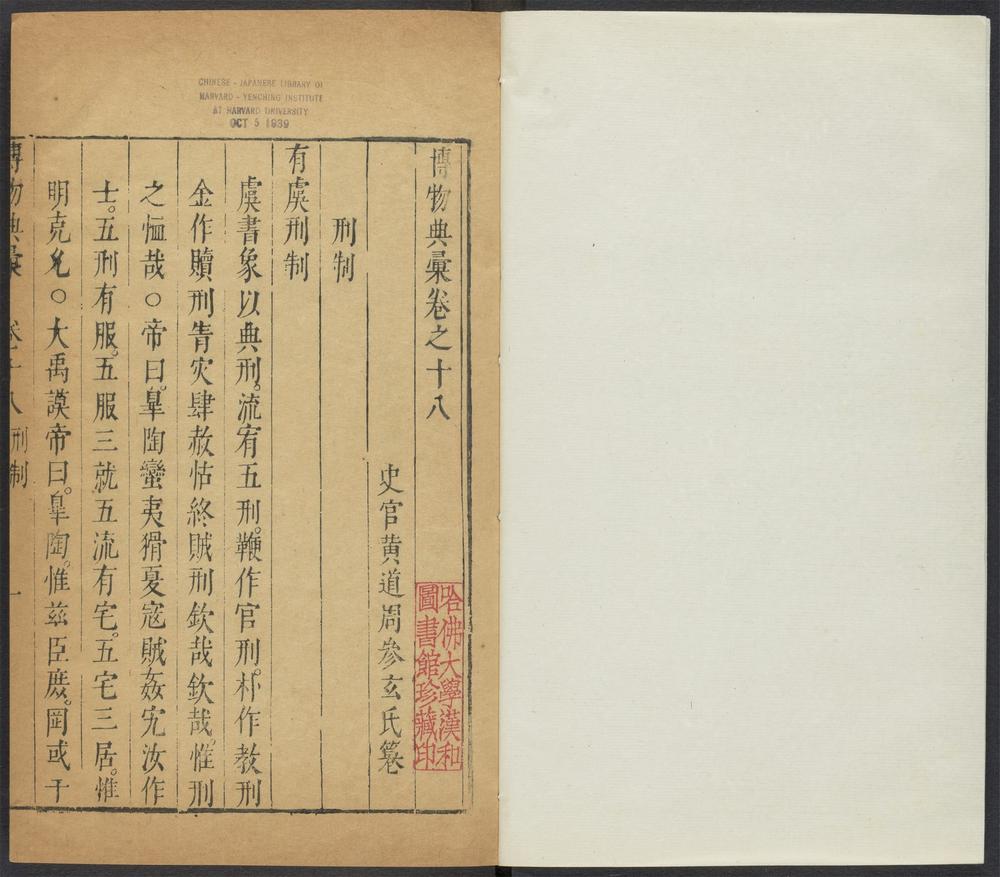 CHINESE - JAPANESE LIBRARY OF
HARVARD - YENCHING INSTITUTE
AT HARVARD UNIVERSITY
OCT 5 1939
博物典彙卷之十八
史官黄道周參玄氏纂
刑制
有虞刑制
虞書象以典刑。流宥五刑。鞭作官刑。朴作教刑
金作贖刑眚灾肆赦怙終賊刑欽哉欽哉。惟刑
之恤哉○帝曰。臯陶蠻夷猾夏寇賊姦宄汝作
士。五刑有服。五服三就五流有宅。五宅三居。惟
明克允○大禹謨帝曰。臯陶。惟兹臣庻。罔或干
博物典彙 卷十八 刑制 一
哈佛大學漢和
圖書館珍藏印